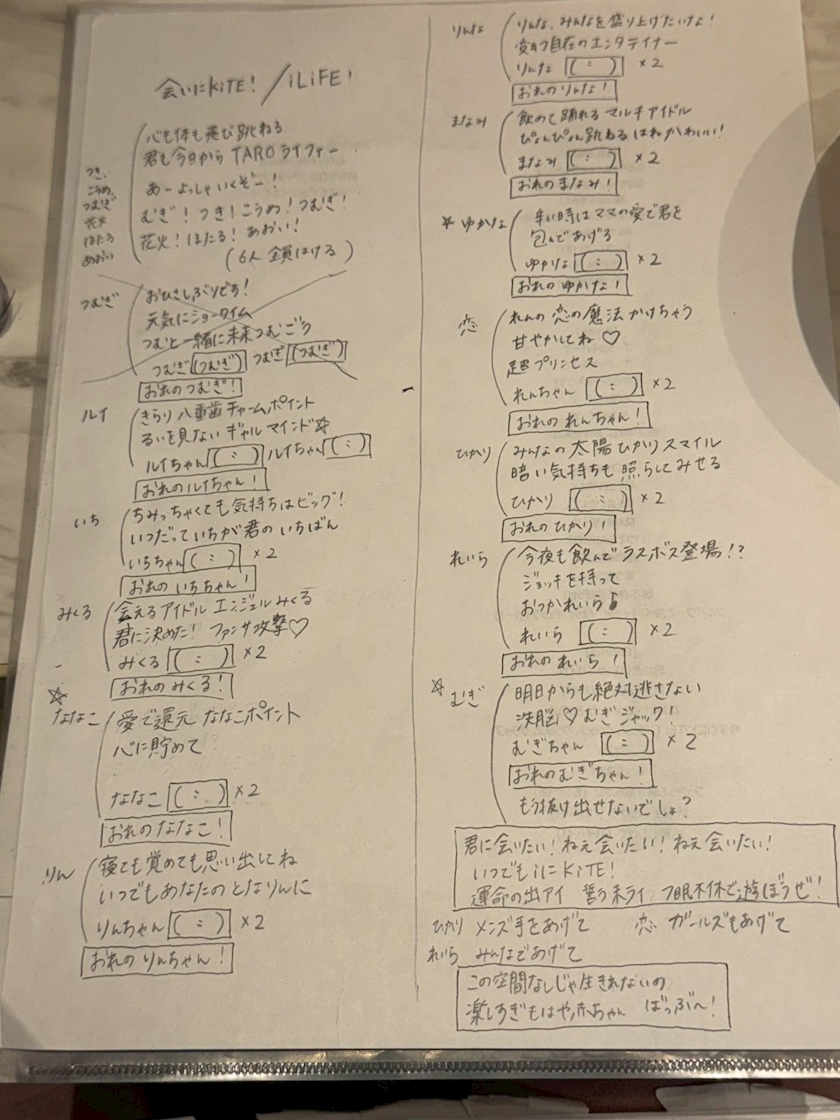 会いにKiTE! / iLiFE!
つき、
こうめ、
つむぎ
花火
ほたる
あおい
心も体も飛び跳ねる
君も今日から TAROライファー
あーよっしゃいくぞー!
むぎ!つき!こうめ!つむぎ!
花火!ほたる!あおい!
(6人 全員はける)
つむぎ
おひさしぶりです!
元気にショータイム
つむと一緒に未来つむごう
つむぎ(つむぎ) つむぎ(つむぎ)
おれのつむぎ!
ルイ
きらり八重歯チャームポイント
るいを見ない ギャルマインド☆
ルイちゃん( : ) ルイちゃん( : )
おれのルイちゃん!
いち
ちみっちゃくても気持ちはビッグ!
いつだっていちが君のいちばん
いちちゃん( : ) ×2
おれの いちちゃん!
みくる
会えるアイドル エンジェルみくる
君に決めた! ファンサ攻撃♡
みくる ( : ) ×2
おれのみくる!
☆
ななこ
愛で還元 ななこポイント
心に貯めて
ななこ ( : ) ×2
おれのななこ!
りん
寝ても覚めても思い出してね
いつでもあなたのとなりんに
りんちゃん ( : ) ×2
おれのりんちゃん!
りんな
りんな、みんなを盛り上げたいよ!
変幻自在のエンタテイナー
りんな ( : ) ×2
おれのりんな!
まなみ
飲めて踊れる マルチアイドル
ぴょんぴょん跳ねる はねかわいい!
まなみ ( : ) ×2
おれのまなみ!
☆ ゆかな
辛い時はママの愛で君を
包んであげる
ゆかな ( : ) ×2
おれの ゆかな!
恋
れんの恋の魔法かけちゃう
甘やかしてね♡
超プリンセス
れんちゃん ( : ) ×2
おれの れんちゃん!
ひかり
みんなの太陽ひかりスマイル
暗い気持ちも照らしてみせる
ひかり ( : ) ×2
おれの ひかり!
れいら
今夜も飲んで ラスボス登場!?
ジョッキを持って
おつかれいら♪
れいら ( : ) ×2
おれの れいら!
☆
むぎ
明日からも絶対逃さない
洗脳♡むぎジャック!
むぎちゃん ( : ) ×2
おれのむぎちゃん!
もう抜け出せないでしょ?
君に会いたい!ねえ会いたい!ねえ会いたい!
いつでもiにKiTE!
運命の出アイ 誓うネライ フ眠不休で遊ぼうぜ!
ひかり メンズ手をあげて 恋 ガールズもあげて
れいら みんなであげて
この空間なしじゃ生きれないの
楽しすぎもはや赤ちゃん ばっぶ〜!